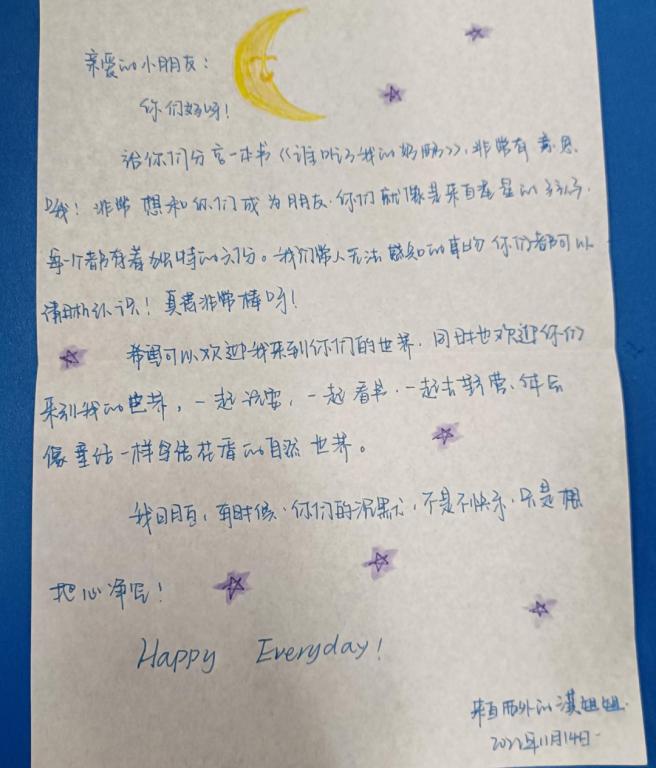 亲爱的小朋友：
你们好呀！
给你们分享一本书《谁叼了我的奶酪》，非常有意思
哦！非常想和你们成为朋友，你们就像是来自星星的孩子，
每一个都有着独特的天份。我们常人无法感知的事物你们都可以
清晰认识！真是非常棒呀！
希望可以欢迎我来到你们的世界，同时也欢迎你们
来到我的世界，一起玩耍，一起看书，一起去野营，
像童话一样的自然世界。
我明白，有时候，你们的沉默，不是不快乐，只是想
把心净空！
Happy Everyday!
来自西外的淇姐姐
2022年11月14日